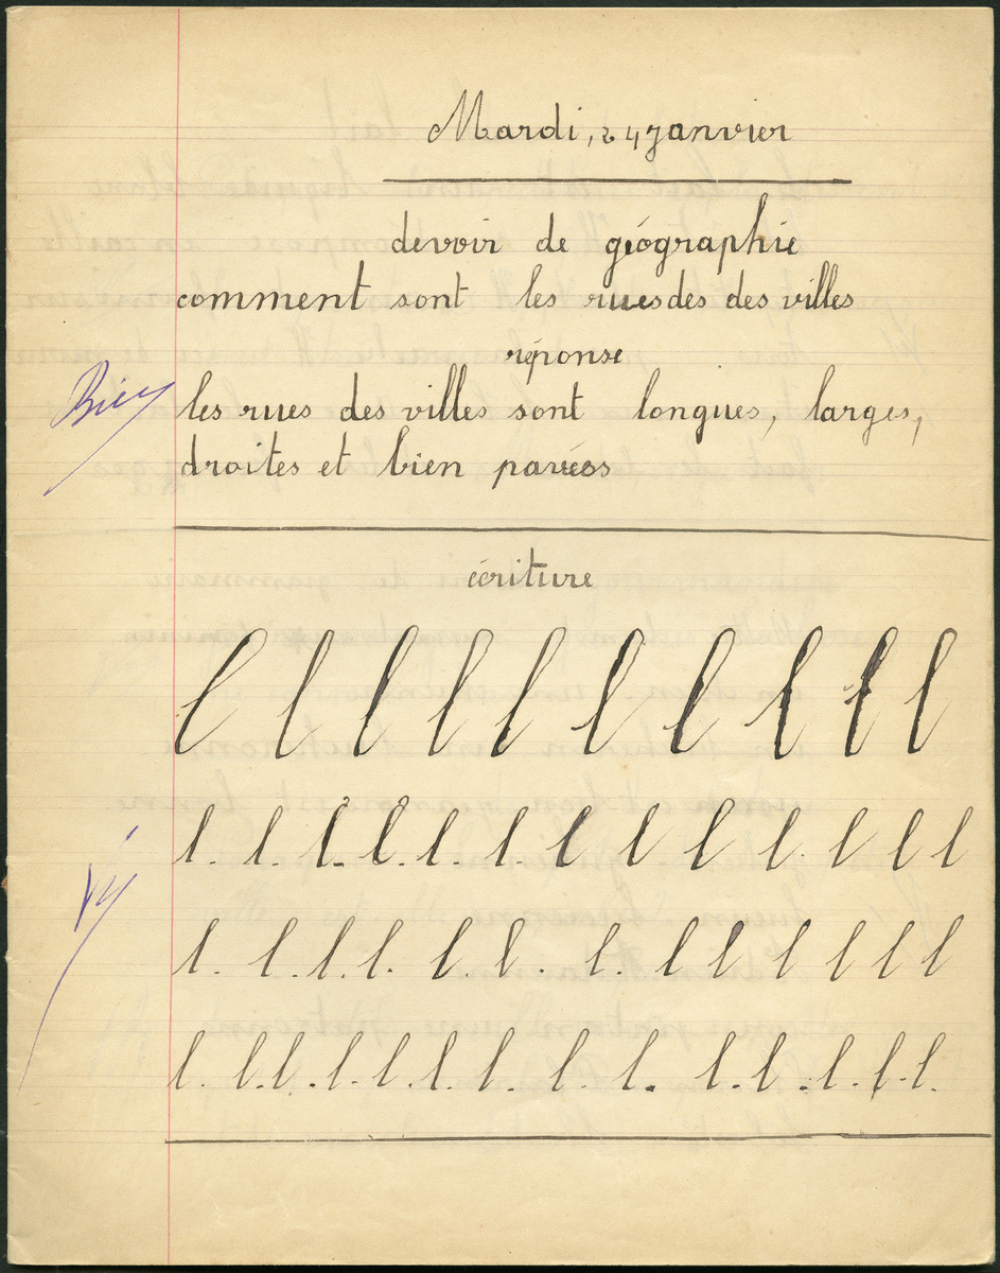 Mardi, 24 janvier
devoir de géographie
comment sont les rues des des villes
réponse
Bien
les rues des villes sont longues, larges,
droites et bien pavées
écriture
l l l l l l l l l l
l. l. l. l. l. l l l l l. l l l
l. l. l. l. l. l. l. l l l l l l
l. l. l. l. l. l. l. l. l. l. l. l. l. l.